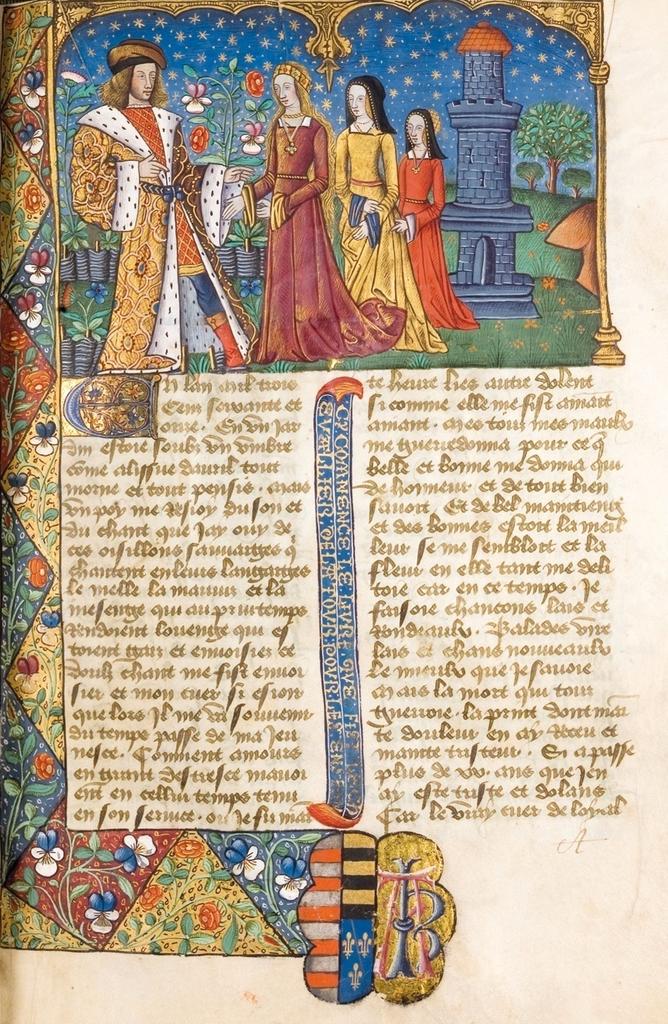 En lan mil trois
Cens soixante et
onze. En un jar
din estoie soubz un umbre
come alissue davril tout
morne et tout pensis. mais
un poy me resjoy du son et
du chant que jay ouy de
ces oisillons sauvaiges q
chantent en leurs langaiges
le melle la mauvis et la
mesenge qui au printemps
rendoient louenge qui es
toient gay et envoisies et
doulz chant me fist envoi
sier et mon cuer si esioir
que lors il me va souvenir
du temps passe de ma jeu
nesce. Comment amours
en grant destresce mavoi
ent en cellui temps tenu
en son service. ou je fu mai
CY COMMENCE LE LIVRE QUE FIST LE
CHEVALLIER DE LA TOUR POUR
te heure lies autre dolent
si comme elle me fist amant
amant. mes tous mes maulx
me guerredonna pour ce q
belle et bonne me donna qui
de honneur et de tout bien
savoit. Et de bel maintieng
et des bonnes estoit la meil
leur se me sembloit et la
fleur en elle tant me deli
toie car en ce temps. Je
faisoie chancons lais et
Rondeaulx. Balades vire
lais et chans nouveaulx
Le mieulx que je savoie
Mais la mort qui tout
guerroie. la print dont mai
te douleur en ay receu et
mainte tristeur. Si a passe
plus de xx. ans que jen
ay este triste et dolans
Car le vray cuer de loyal
A